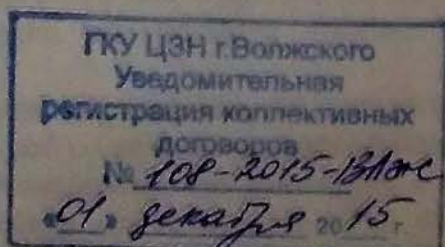 ГКУ ЦЗН г.Волжского
Уведомительная
регистрация коллективных
договоров
№ 108-2015-Влж
«01» декабря 2015 г.